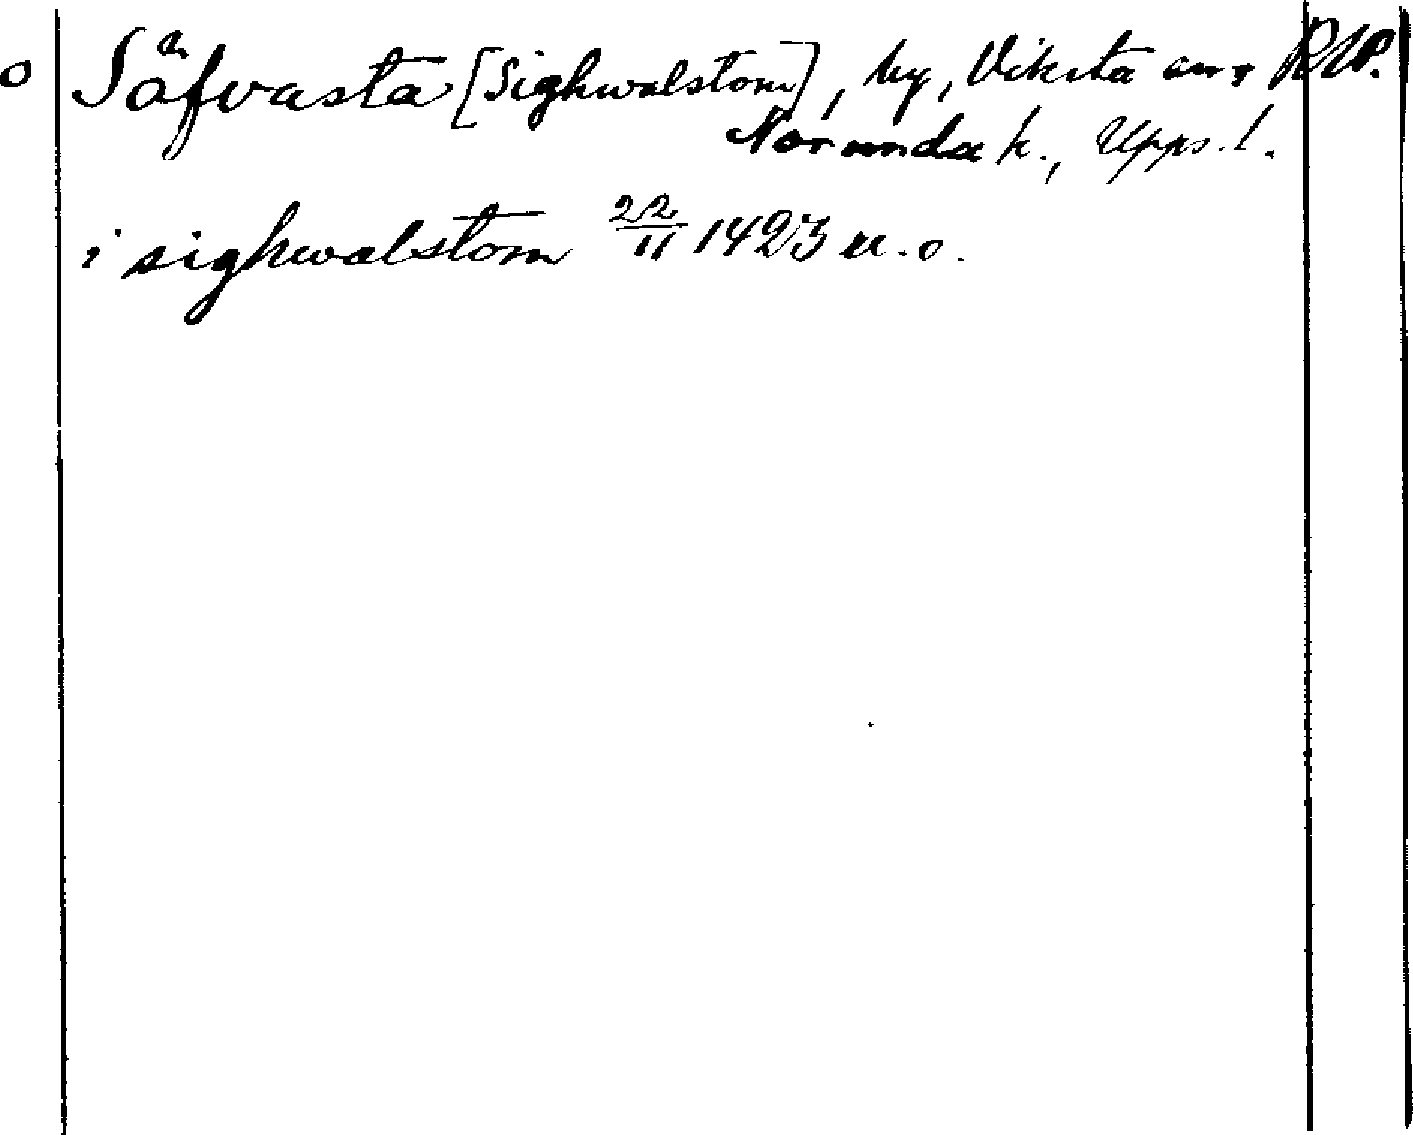 o Säfvasta [Sighwalstom], by, Viksta sn, RAP.
Norunda h., Upps. l.
i sighwalstom 22/11 1423 u. o.